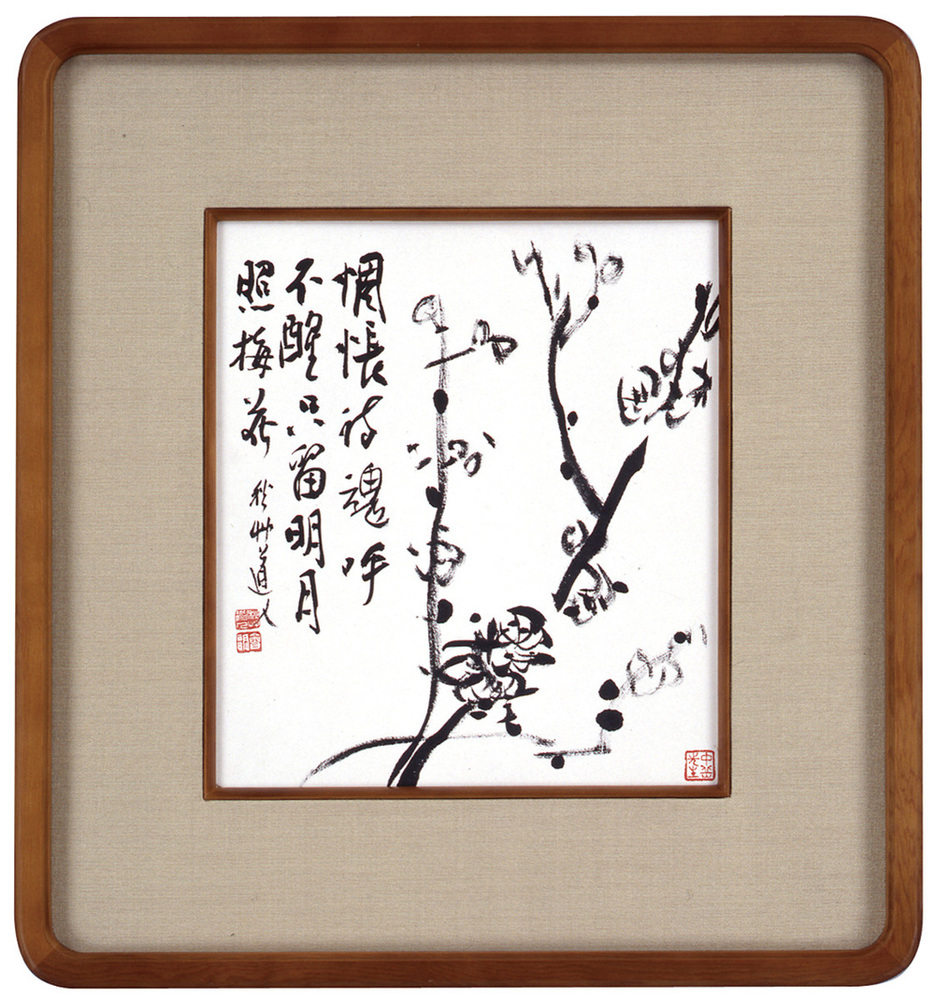 惆悵詩魂呼
不醒只留明月
照梅花
秋艸道人